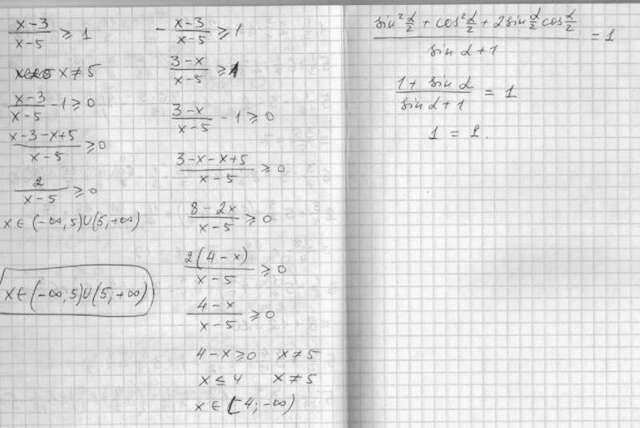 x-3/x-5 ≥ 1
x≠5
x-3/x-5 -1≥0
x-3-x+5/x-5 ≥0
2/x-5 ≥0
x∈(-∞,5)∪(5,+∞)
x∈(-∞,5)∪(5,+∞)
- x-3/x-5 ≥1
3-x/x-5 ≥1
3-x/x-5 -1≥0
3-x-x+5/x-5 ≥0
8-2x/x-5 ≥0
2(4-x)/x-5 ≥0
4-x/x-5 ≥0
4-x≥0 x≠5
x≤4 x≠5
x∈[4;-∞)
sin²α/2 + cos²α/2 + 2sin α/2 cos α/2 / sin α+1 = 1
1+ sin α / sin α+1 = 1
1 = 1.